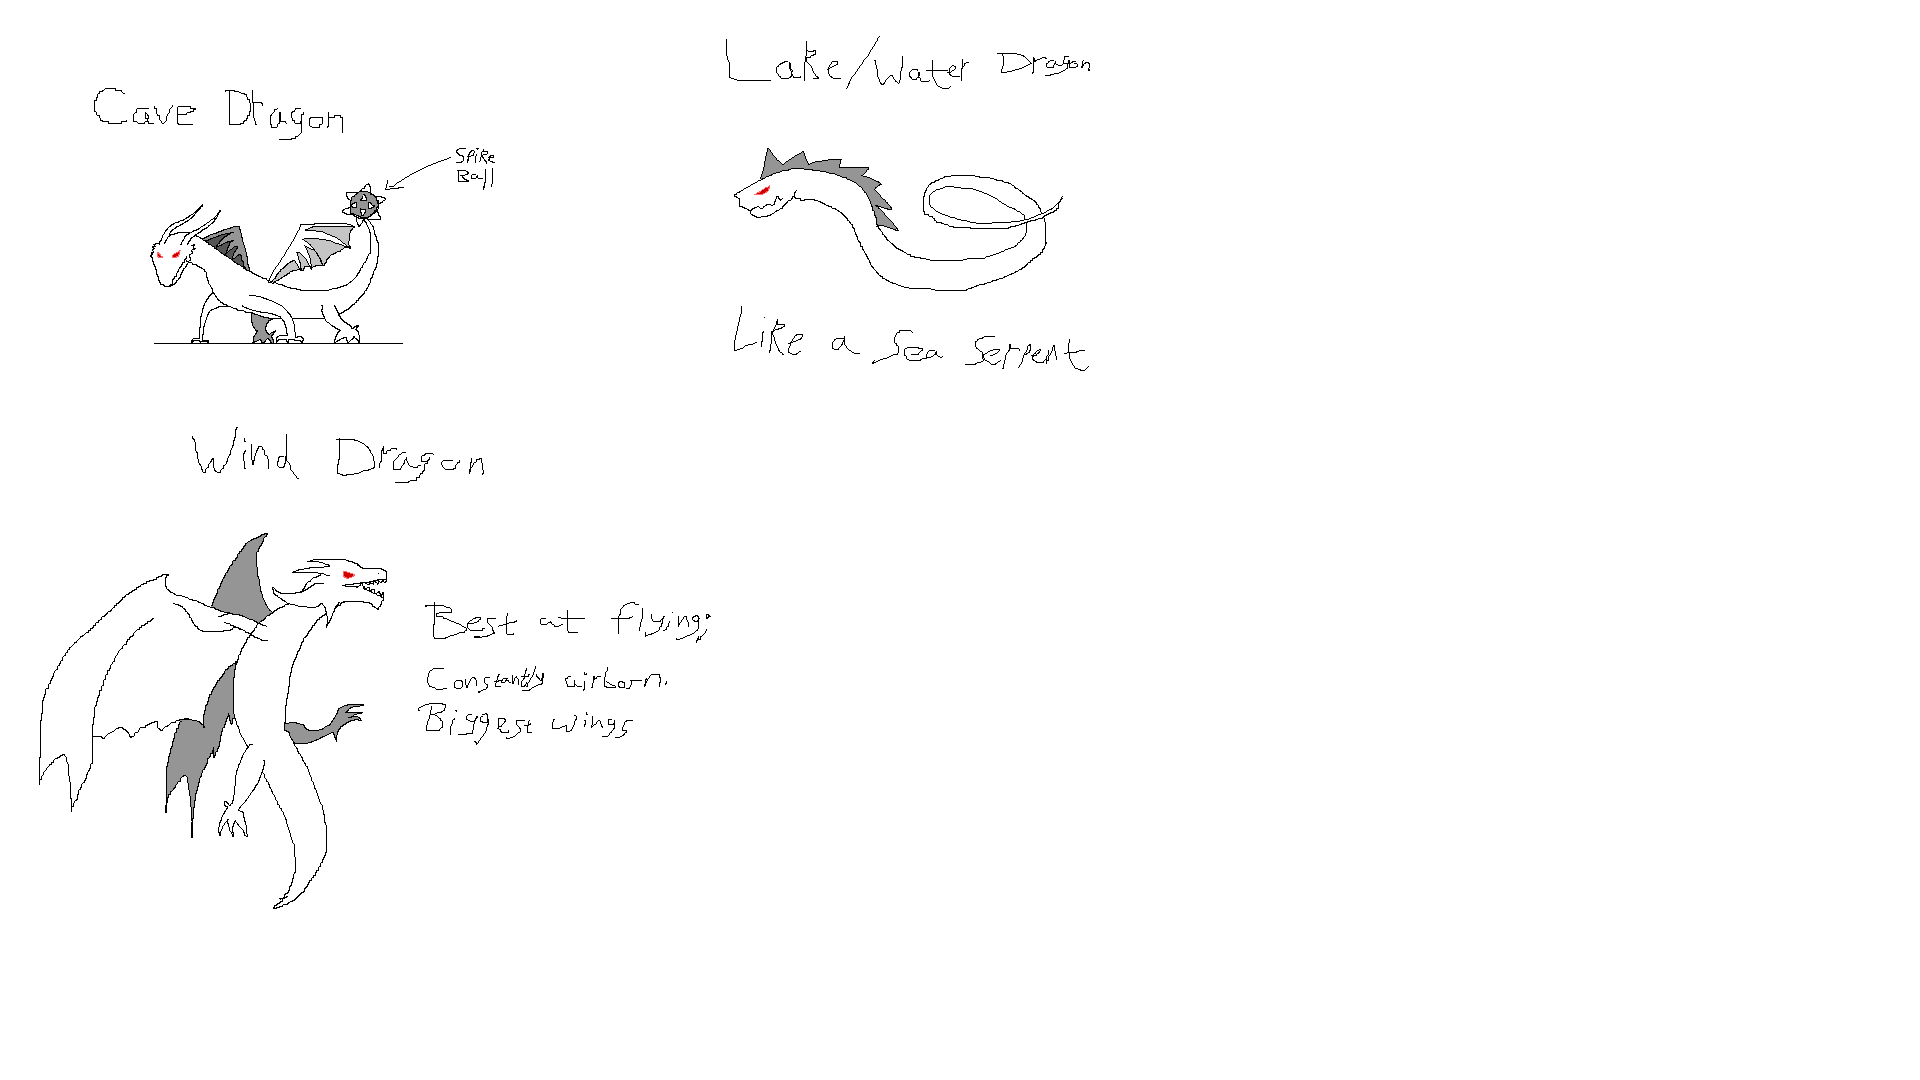 Cave Dragon
Spike
Ball
Lake/Water Dragon
Like a Sea Serpent
Wind Dragon
Best at flying;
Constantly airborn.
Biggest wings